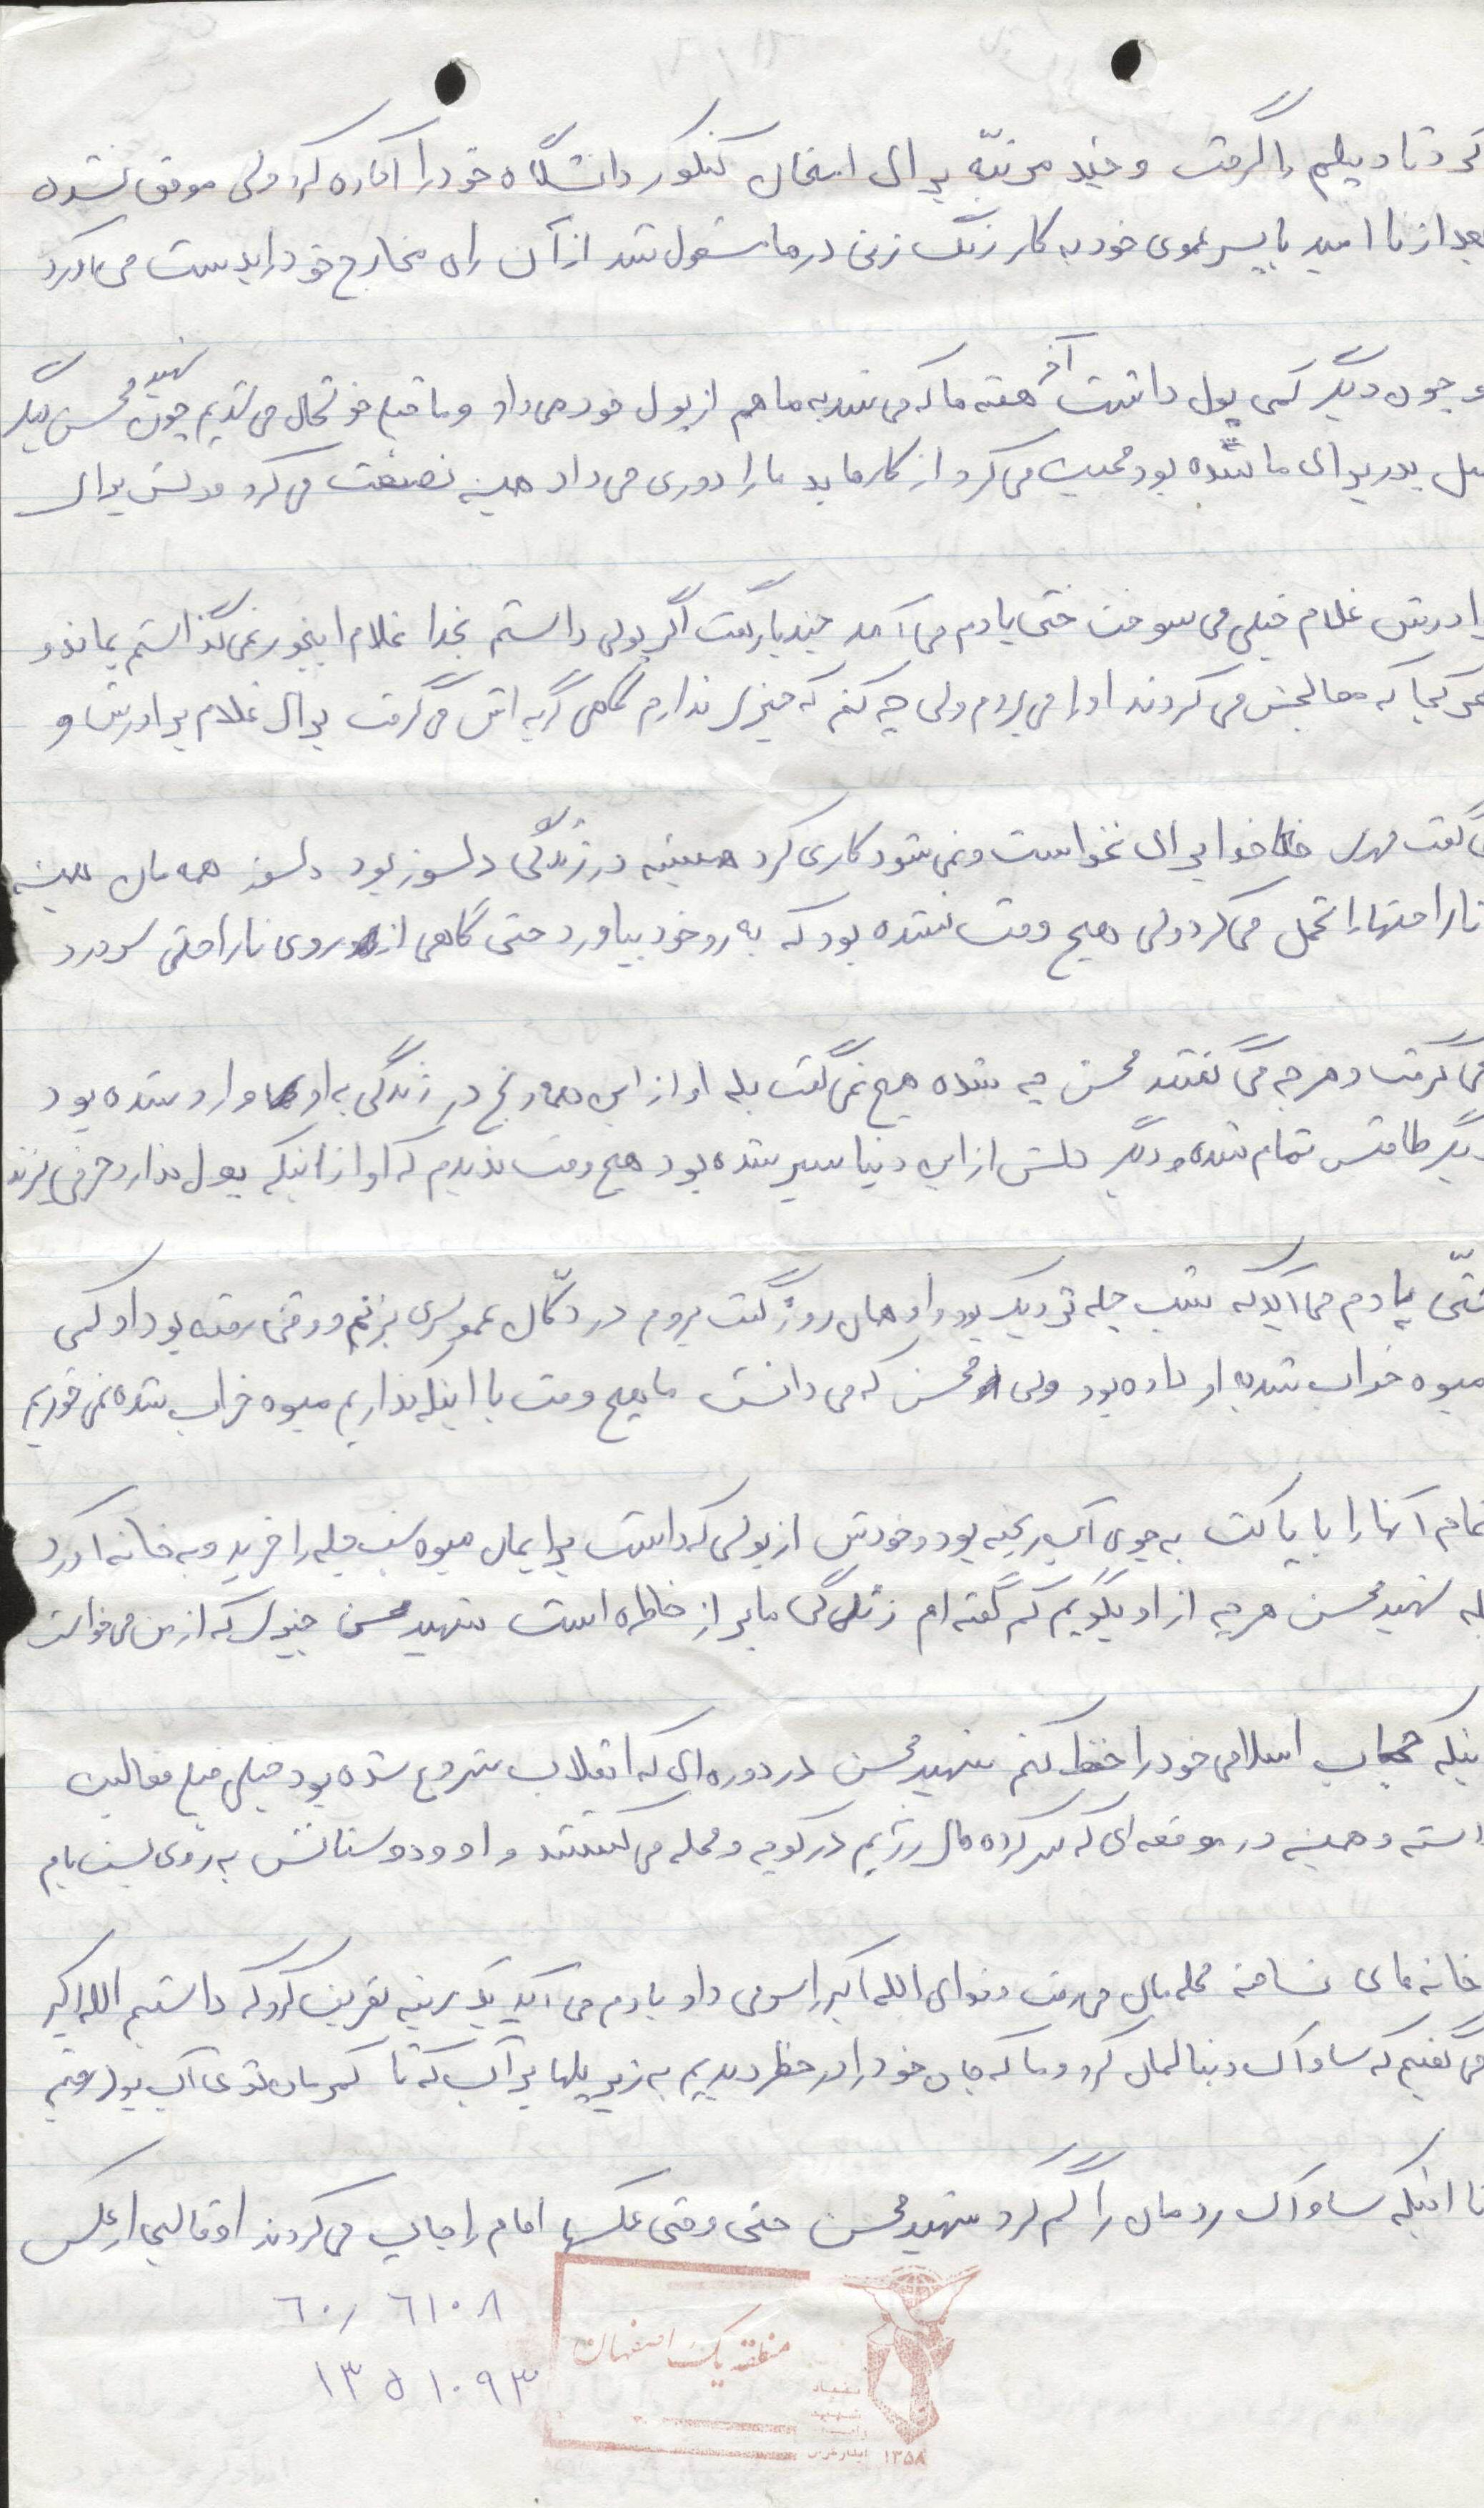 کرد تا دیپلم را گرفت و چند مرتبّه برای امتحان کنکور دانشگاه خود را آماده کرد ولی موفق نشده
بعد از نا امید با پسر عموی خود به کار زنگ زنی درها مشغول شد از آن راه مخارج خود را بدست می‌آورد
و چون دیگر کمی پول داشت آخر هفته ها که می شد به ما هم از پول خود می داد و ما خیلی خوشحال می شدیم چون شهید محسن دیگر
مثل پدر برای ما شده بود محبت می کرد از کارها بد ما را دوری می داد همیشه نصیحت می کرد دلش برای
برادرش غلام خیلی می سوخت حتی یادم می آمد چند بار گفت اگر پولی داشتم بخدا غلام اینجور نمی گذاشتم بماند و
هر کجا که معالجش می کردند او را می بردم ولی چه کنم که چیزی ندارم گاهی گریه اش می گرفت برای غلام برادرش و
می گفت مهدی خدا برای نخواست و نمی شود کاری کرد همیشه در زندگی دلسوز بود دلسوز همه مان همیشه
ناراحتها را تحمل می کرد ولی هیچ وقت نشده بود که به رو خود بیاورد حتی گاهی از روی ناراحتی سردرد
می گرفت و هر چه می گفتند محسن چه شده هیچ نمی گفت بله او از این همه رنج در زندگی به او وارد شده بود
دیگر طاقتش تمام شده و دیگر دلش از این دنیا سیر شده بود هیچ وقت ندیدم که او از اینکه پول ندارد حرفی بزند
حتّی یادم می آید که شب چله نزدیک بود و او همان روز گفت بروم در دکّان عمو سری بزنم و وقتی رفته بود او کمی
میوه خراب شده به او داده بود ولی محسن که می دانست ما هیچ وقت با اینکه نداریم میوه خراب شده نمی خوریم
تمام آنها را با پاکت به جوی آب ریخته بود و خودش از پولی که داشت برایمان میوه شب چله را خرید و به خانه آورد
بله شهید محسن هر چه از او بگویم کم گفته ام زندگی ما پر از خاطره است شهید محسن چیزی که از من می خواست
اینکه حجاب اسلامی خود را حفظ کنم شهید محسن در دوره ای که انقلاب شروع شده بود خیلی خیلی فعالیت
داشته و همیشه در موقعه ای که سر کرده های رژیم در کوچه و محله می گشتند و او و دوستانش به روی پشت بام
خانه های نساخته محله مان می رفت و نوای الله اکبر را سر می داد یادم می آید یک مرتبه تعریف کرد که داشتیم الله اکبر
می گفتیم که ساواک دنبالمان کرد و ما که جان خود را در خطر دیدیم به زیر پلها پر آب که تا کمرمان توی آب بود رفتیم
تا اینکه ساواک ردمان را گم کرد شهید محسن حتی وقتی عکسها امام را چاپ می کردند او قالبی از عکس
۶۰/ ۶۱۰۸
۱۳۵۱۰۹۳
منطقه یک اصفهان
بنیاد
شهید
۱۳۵۸